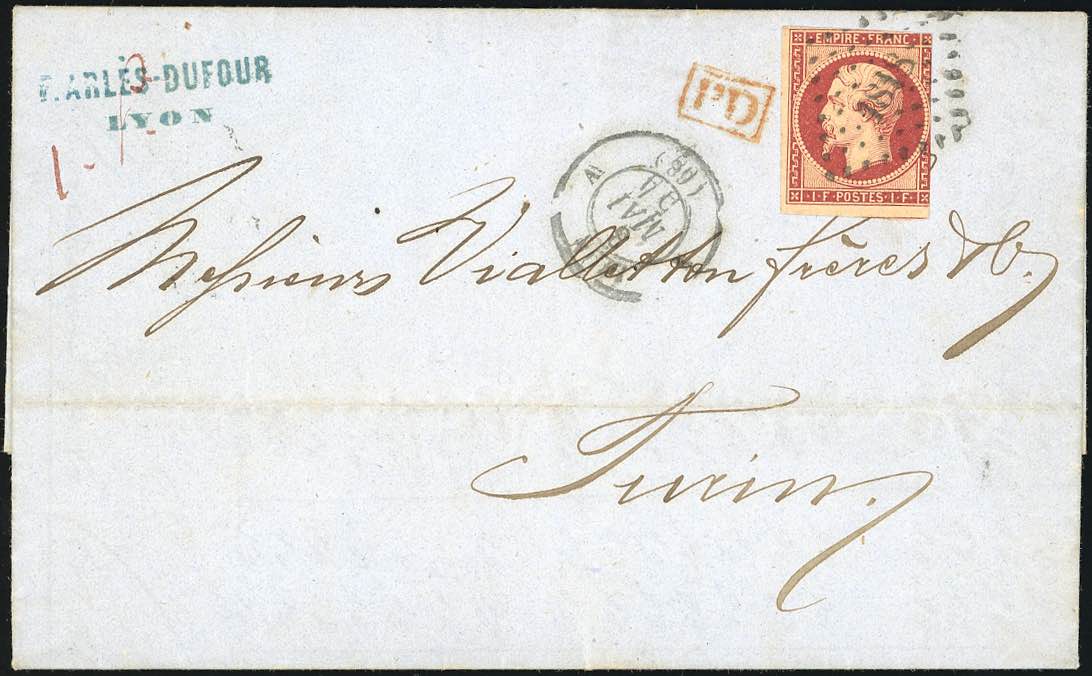 F. ARLÈS-DUFOUR
LYON
P.D.
EMPIRE · FRANC ·
· 1 · F · POSTES · 1 · F ·
MAI
(68)
Messieurs Vialletton frères & Cie.
Turin.